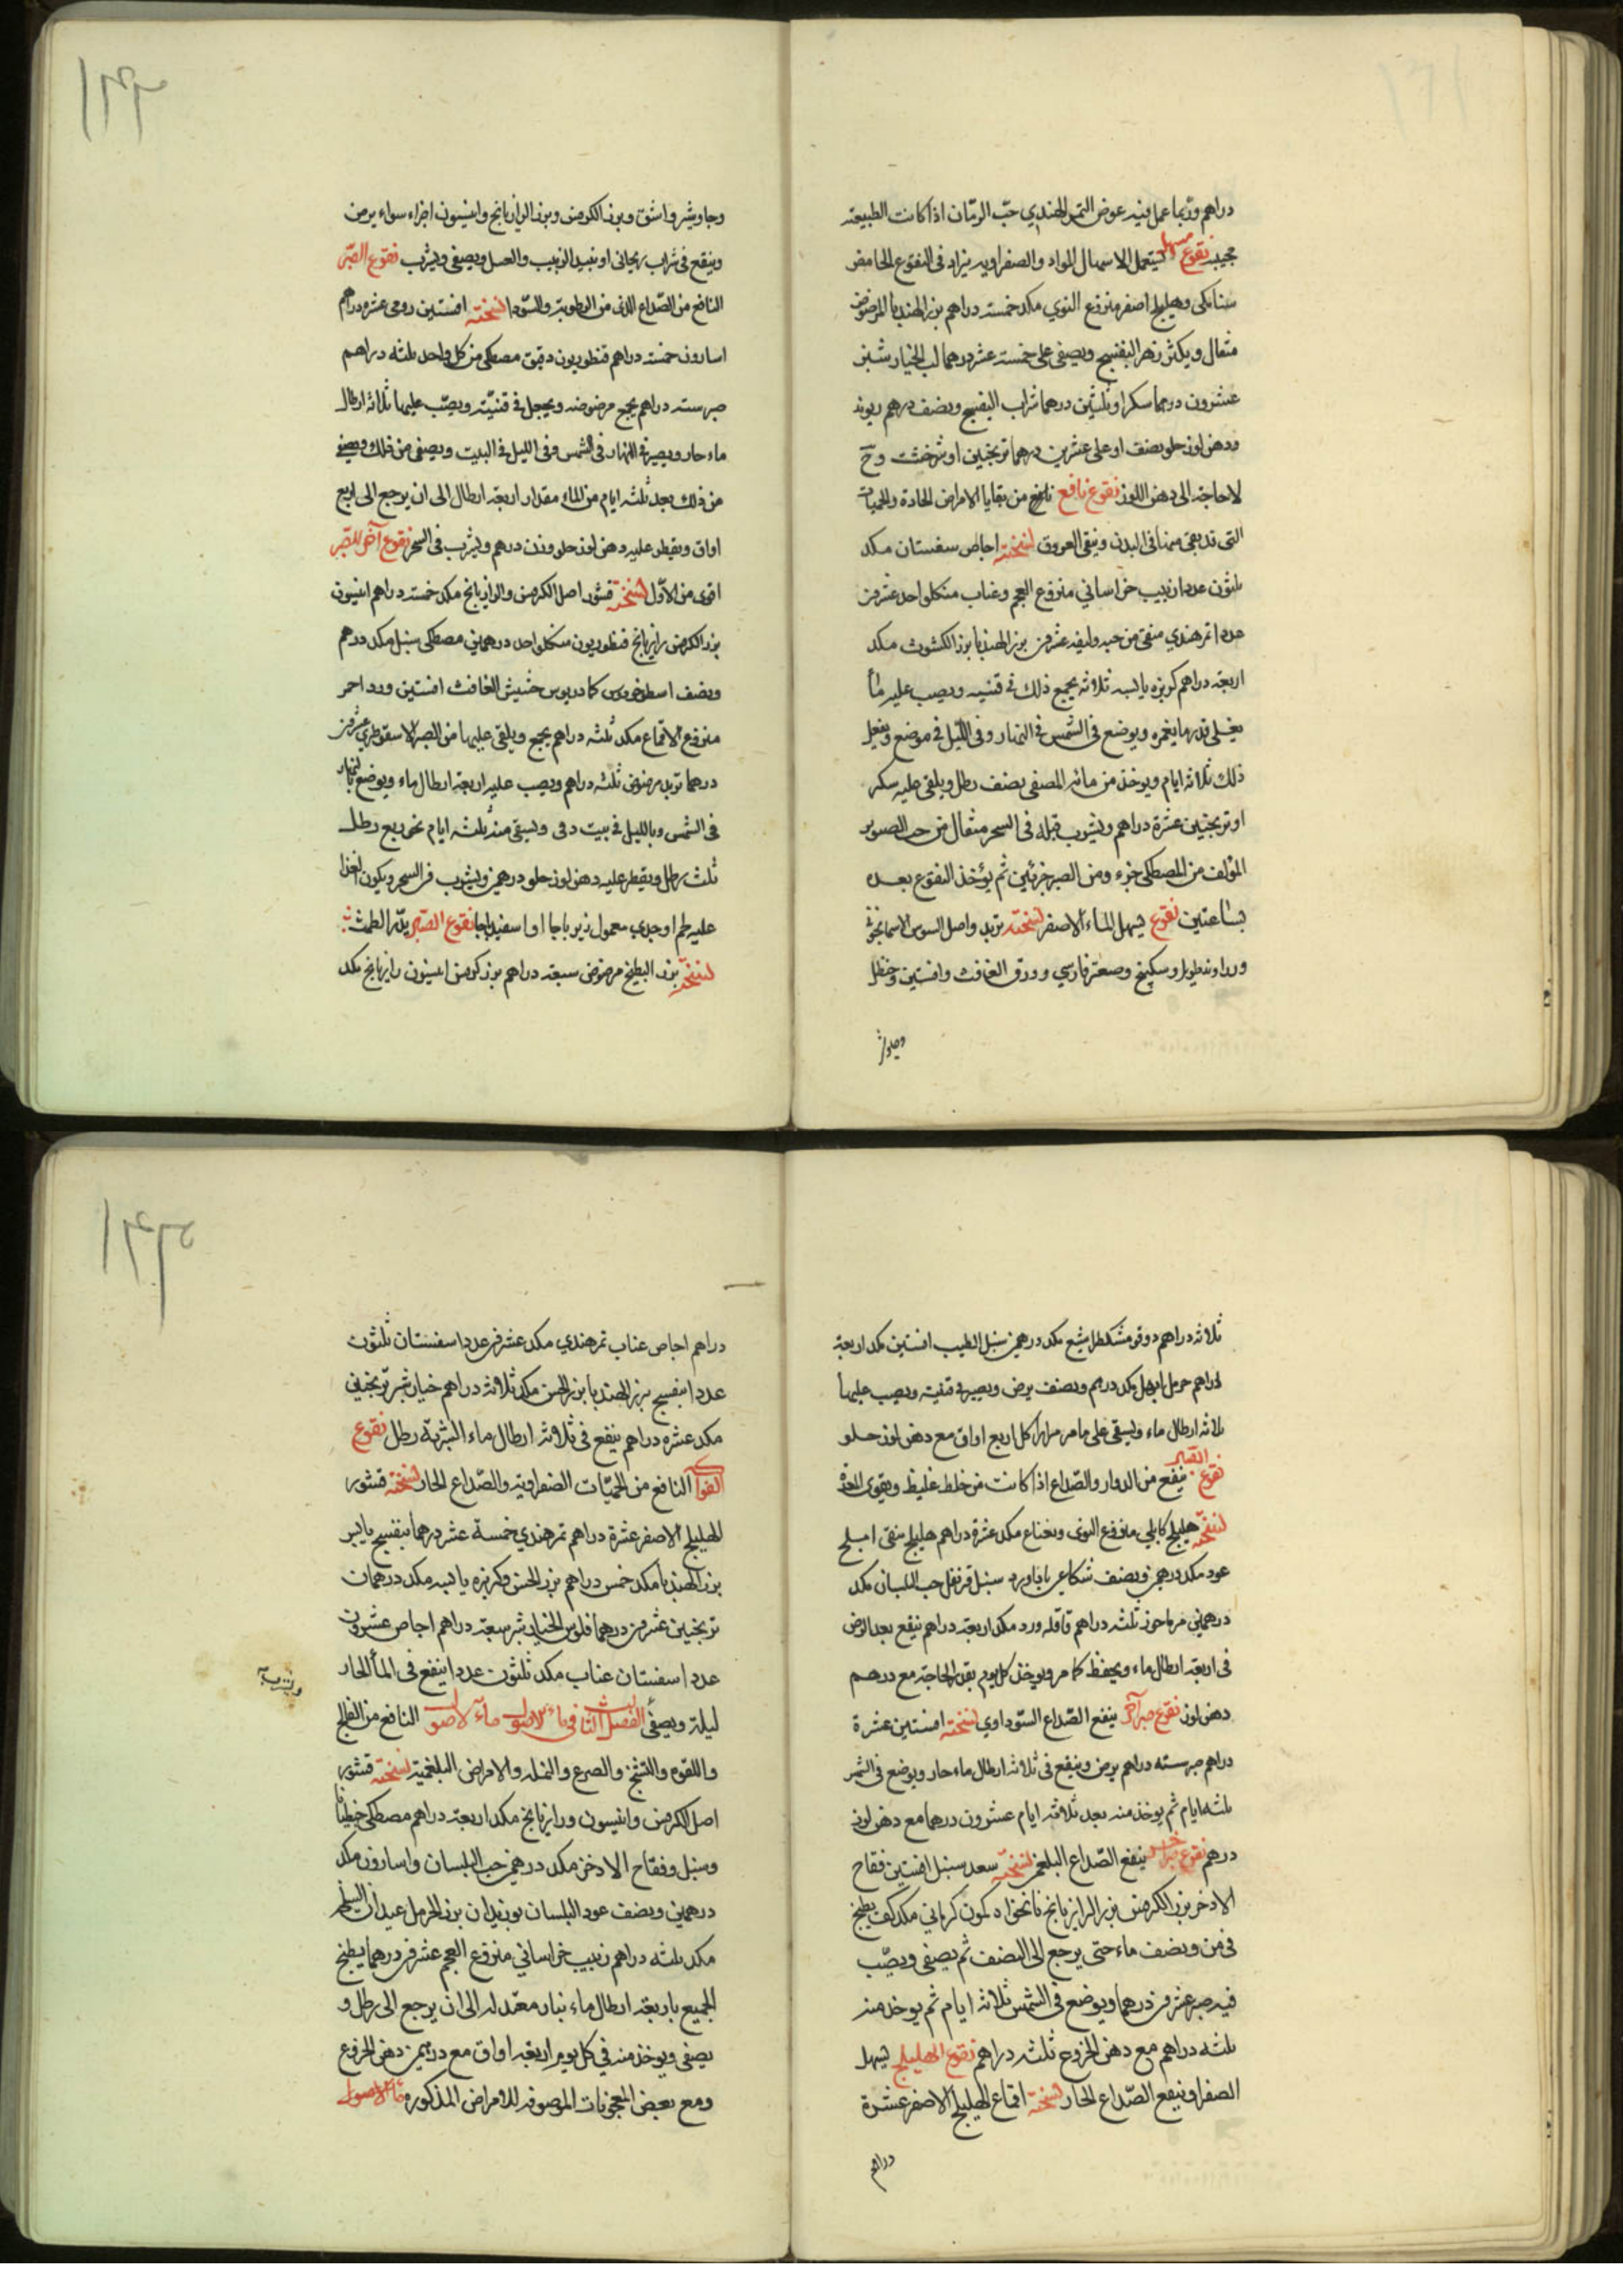 دراهم وربما عمل فيه عوض التمر الهندي حب الرمان اذا كانت الطبيعة
مجيبة نقوع مسهل يستعمل لاسهال المواد الصفراوية يزاد في النقوع الحامض
سنا مكي وهليلج اصفر منزوع النوي مكد خمسة دراهم بزر الهندبا المرضوض
مثقال ويكثر زهر البنفسج ويصفى على خمسة عشر درهما لب الخيار شنبر
عشرون درهما سكرا وثلثين درهما شراب البنفسج ونصف درهم ريوند
ودهن لوز حلو نصف او على عشرين درهما ترنجبين او شرخشت وح
لا حاجة الى دهن اللوز نقوع نافع نافع من بقايا الامراض الحادة والحميات
التي قد بقى منها في البدن وينقى العروق نسخته اجاص سفستان مكد
ثلثون عددا زبيب خراساني منزوع العجم وعناب منكلواحد عشرين
عددا تمر هندي منقى من حبه وليفه عشرين بزر الهندبا بزر الكشوث مكد
اربعة دراهم كزبره يابسه ثلاثه يجمع ذلك في قنينه ويصب عليه مأ
يغلي قدر ما يغمره ويوضع في الشمس في النهار وفي الليل في موضع ويفعل
ذلك ثلاثة ايام ويوخذ من مائه المصفى نصف رطل ويلقى عليه سكر
او ترنجبين عشرة دراهم ويشرب قبله في السحر مثقال من حب الصبر
المؤلف من المصطكى جزء ومن الصبر جزئين ثم يؤخذ النقوع بعده
بساعتين نقوع يسهل الماء الاصفر نسخته تربد واصل السوس الاسمانجوني
وزراوند طويل وسكبينج وصعتر فارسي وورق الغافث وافسنتين وحنظل
وجاوشير
وجاوشير واشق وبزر الكرفس وبزر الرازيانج وانيسون اجزاء سواء يرض
وينقع في شراب ريحاني او نبيذ الزبيب والعسل ويصفى ويشرب نقوع الصبر
النافع من الصداع الذي من الرطوبة والسودا نسخته افسنتين رومى عشره دراهم
اسارون خمسة دراهم قنطوريون دقيق مصطكى من كل واحد ثلثه دراهم
صبر سته دراهم يجمع مرضوضه ويجعل في قنينة ويصب عليها ثلاثة ارطال
ماء حار ويصير في النهار في الشمس وفي الليل في البيت ويصفى من ذلك ويسقى
من ذلك بعد ثلثة ايام من الماء مقدار اربعة ارطال الى ان يرجع الى اربع
اواق ويقطر عليه دهن لوز حلو وزن درهم ويشرب في السحر نقوع آخر للصبر
اقوى من الاول نسخته قشور اصل الكرفس والرازيانج مكد خمسة دراهم انيسون
بزر الكرفس رازيانج قنطوريون منكلواحد درهمين مصطكى سنبل مكد درهم
ونصف اسطوخودس كمادريوس حشيش الغافث افسنتين ورد احمر
منزوع الاقماع مكد ثلثه دراهم يجمع ويلقى عليها من الصبر الاسقوطري عشرين
درهما تربد مرضوض ثلثه دراهم ويصب عليه اربعة ارطال ماء ويوضع بالنهار
في الشمس وبالليل في بيت دفى ويسقى منه ثلثة ايام نحو ربع رطل
ثلث رطل ويقطر عليه دهن لوز حلو درهمين ويشرب في السحر ويكون الغذا
عليه لحم اوجدي معمول زيرباجا او اسفيدباجا نقوع الصبر يدر الطمث
نسخته بزر البطيخ مرضوض سبعة دراهم بزر كرفس انيسون رازيانج مكد
ثلاثه دراهم دوقو مشكطرامشيع مكد درهمين سنبل الطيب افسنتين مكد اربعة
دراهم حرمل ابهل مكد درهم ونصف يرض ويصير في قنينة ويصب عليها
ثلاثه ارطال ماء ويسقى على ما مر مرارا كل اربع اواق مع دهن لوز حلو
نقوع الصبر ينفع من الدوار والصداع اذا كانت من خلط غليظ ويقوى المعدة
نسخته هليلج كابلي منزوع النوى ونعناع مكد عشرة دراهم هليلج منقى املج
عود مكد درهمين ونصف شكاعى باداورد سنبل قرنفل حب البلسان مكد
درهمين مرماحوز ثلثه دراهم قاقله ورد مكد اربعة دراهم ينقع بعد الرض
في اربعة ارطال ماء ويحفظ كما مر ويوخذ كل يوم بقدر الحاجة مع درهم
دهن لوز نقوع صبر آخر ينفع الصداع السوداوي نسخته افسنتين عشرة
دراهم صبر سته دراهم يرض وينقع في ثلاثة ارطال ماء حار ويوضع في الشمس
ثلثه ايام ثم يوخذ منه بعد ثلاثة ايام عشرون درهما مع دهن لوز
درهم نقوع صبر آخر ينفع الصداع البلغمى نسخته سعد سنبل افسنتين فقاح
الاذخر بزر الكرفس بزر الرازيانج نانخواه كمون كرماني مكد كف يطبخ
في من ونصف ماء حتى يرجع الى النصف ثم يصفى ويصب
فيه صبر عشرين درهما ويوضع في الشمس ثلاثة ايام ثم يوخذ منه
ثلثه دراهم مع دهن الخروع ثلثه دراهم نقوع الهليلج يسهل
الصفرا وينفع الصداع الحار نسخته اقماع الهليلج الاصفر عشرة
دراهم
دراهم اجاص عناب تمر هندي مكد عشرين عددا سفستان ثلثون
عددا بنفسج بزر الهندبا بزر الخس مكد ثلاثة دراهم خيارشنبر ترنجبين
مكد عشره دراهم ينقع في ثلاثة ارطال ماء الشربة رطل نقوع
الفواكه النافع من الحميات الصفراوية والصداع الحار نسخته قشور
الهليلج الاصفر عشرة دراهم تمر هندي خمسة عشر درهما بنفسج يابس
بزر الهندبا مكد خمس دراهم بزر الخس وكزبره يابسه مكد درهمان
ترنجبين عشرين درهما فلوس الخيارشنبر سبعة دراهم اجاص عشرون
عددا سفستان عناب مكد ثلثون عددا ينقع في المأ الحار
ليلة ويصفى الفصل الثالث في ماء الاصول مآء الاصول النافع من الفالج
ويشرب
واللقوه والتشنج والصرع والامراض البلغمية نسخته قشور
اصل الكرفس وانيسون ورازيانج مكد اربعة دراهم مصطكى
وسنبل وفقاح الاذخر مكد درهمين حب البلسان واسارون مكد
درهمين ونصف عود البلسان بوزيدان بزر الحرمل عيدان
مكد ثلثه دراهم زبيب خراساني منزوع العجم عشرين درهما يطبخ
الجميع باربعة ارطال ماء بنار معتدله الى ان يرجع الى رطل و
يصفى ويوخذ منه في كل يوم اربعة اواق مع درهمين دهن الخروع
ومع بعض المعجونات الموصوفه للامراض المذكوره مآء الاصول